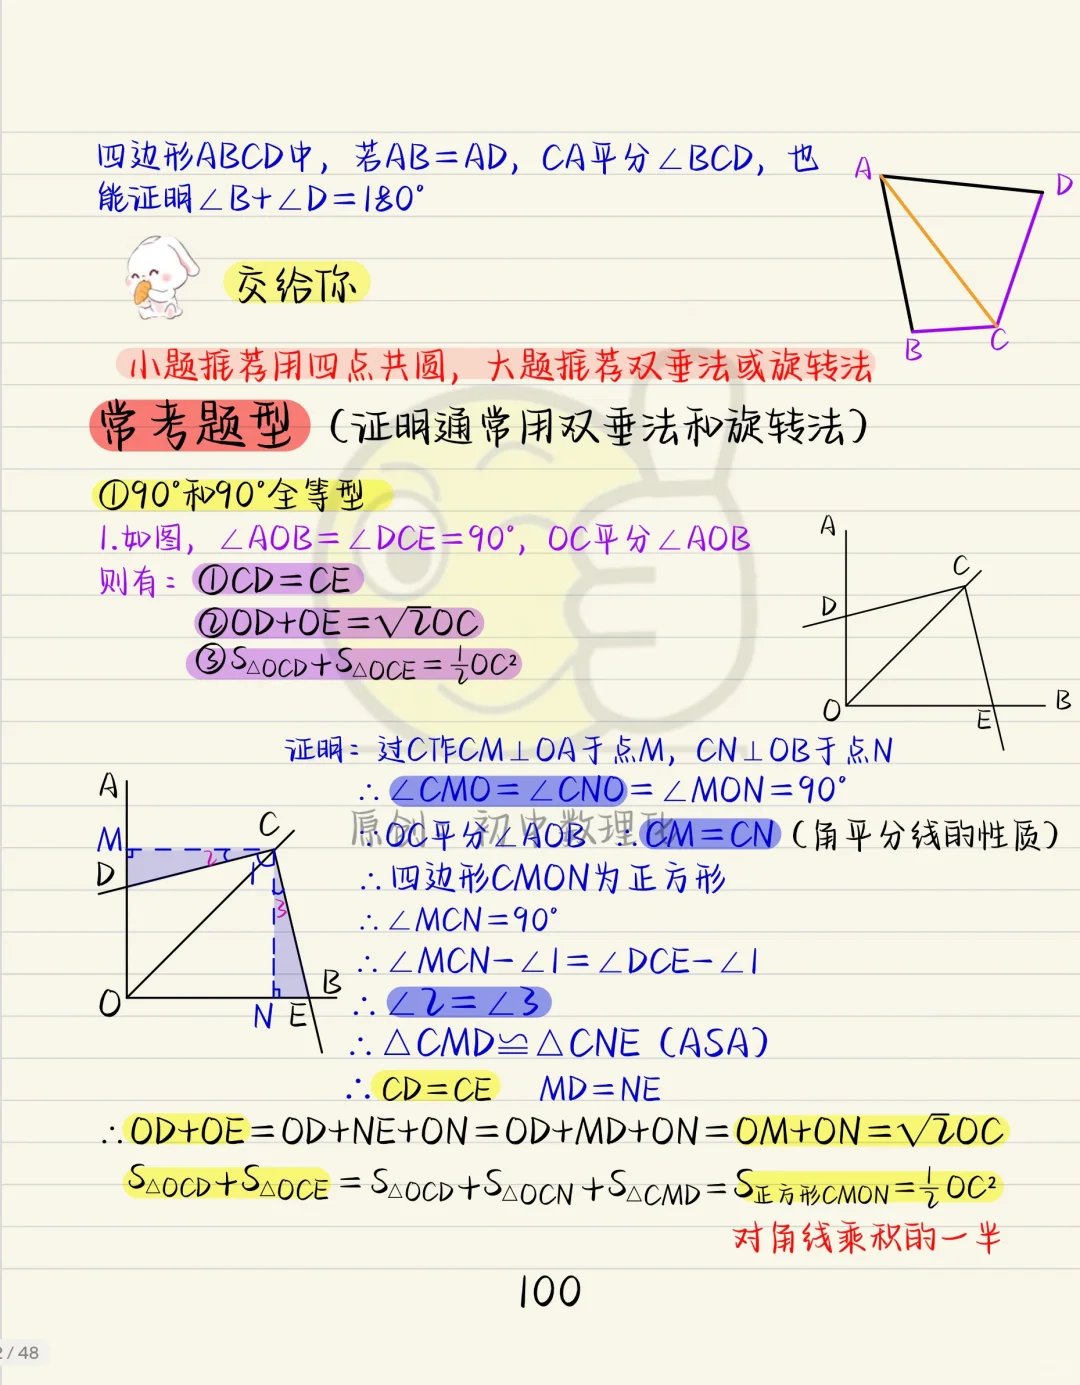 四边形ABCD中，若AB=AD，CA平分∠BCD，也
能证明∠B+∠D=180°
A
D
B
C
交给你
小题推荐用四点共圆，大题推荐双垂法或旋转法
常考题型（证明通常用双垂法和旋转法）
①90°和90°全等型
1.如图，∠AOB=∠DCE=90°，OC平分∠AOB
则有：①CD=CE
②OD+OE=√2OC
③S△OCD+S△OCE=½OC²
A
C
D
O
E
B
证明：过C作CM⊥OA于点M，CN⊥OB于点N
∴∠CMO=∠CNO=∠MON=90°
∵OC平分∠AOB ∴CM=CN（角平分线的性质）
∴四边形CMON为正方形
∴∠MCN=90°
∴∠MCN-∠1=∠DCE-∠1
∴∠2=∠3
∴△CMD≌△CNE（ASA）
∴CD=CE MD=NE
A
M
C
D
2
1
3
O
N
E
B
∴OD+OE=OD+NE+ON=OD+MD+ON=OM+ON=√2OC
S△OCD+S△OCE=S△OCD+S△OCN+S△CMD=S正方形CMON=½OC²
对角线乘积的一半
100
2/48